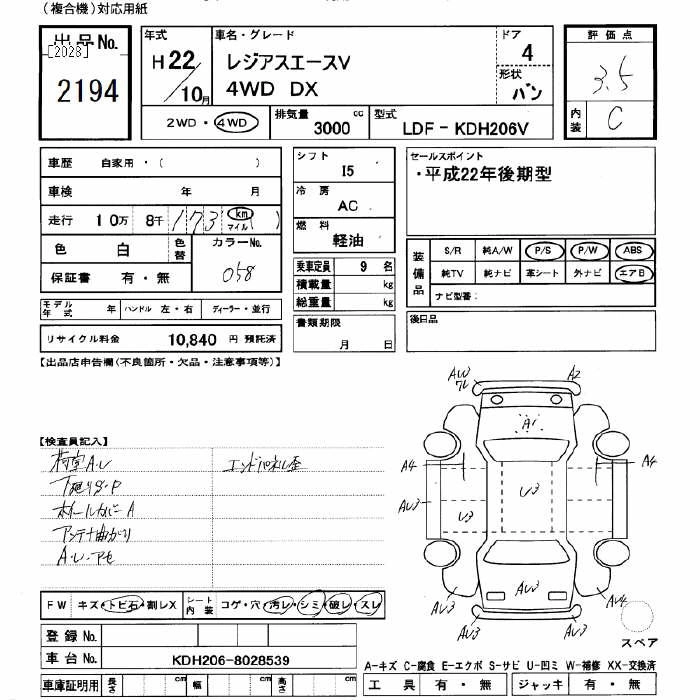 (複合機)対応用紙
出品No.
[2028]
2194
年式
H22/10月
車名・グレード
レジアスエースV
4WD DX
ドア
4
形状
バン
評価点
3.5
内装
C
2WD・4WD
排気量
3000 cc
型式
LDF-KDH206V
車歴 自家用・( )
車検 年 月
走行 10万 8千 173 km マイル ( )
色 白 色替 カラーNo.
保証書 有・無 058
モデル年式 年 ハンドル 左・右 ディーラー・並行
リサイクル料金 10,840 円 預託済
シフト
I5
冷房
AC
燃料
軽油
乗車定員 9 名
積載量 kg
総重量 kg
書類期限
月 日
セールスポイント
・平成22年後期型
装備品
S/R 純A/W P/S P/W ABS
純TV 純ナビ 革シート 外ナビ エアB
ナビ型番:
後日品
【出品店申告欄(不良箇所・欠品・注意事項等)】
【検査員記入】
荷室A・U
エンドパネル歪
下廻りS・P
ホイールカバーA
アンテナ曲がり
A・U・アセ
AW
A2
A1
A4
A4
AU3
U3
U3
AU3
AU3
AU3
AU4
スペア
FW キズ・トビ石・割レX シート内装 コゲ・穴・汚レ・シミ・破レ・スレ
登録No.
車台No. KDH206-8028539
車庫証明用 長さ cm 幅 cm 高さ cm
A-キズ C-腐食 E-エクボ S-サビ U-凹ミ W-補修 XX-交換済
工具 有・無 ジャッキ 有・無